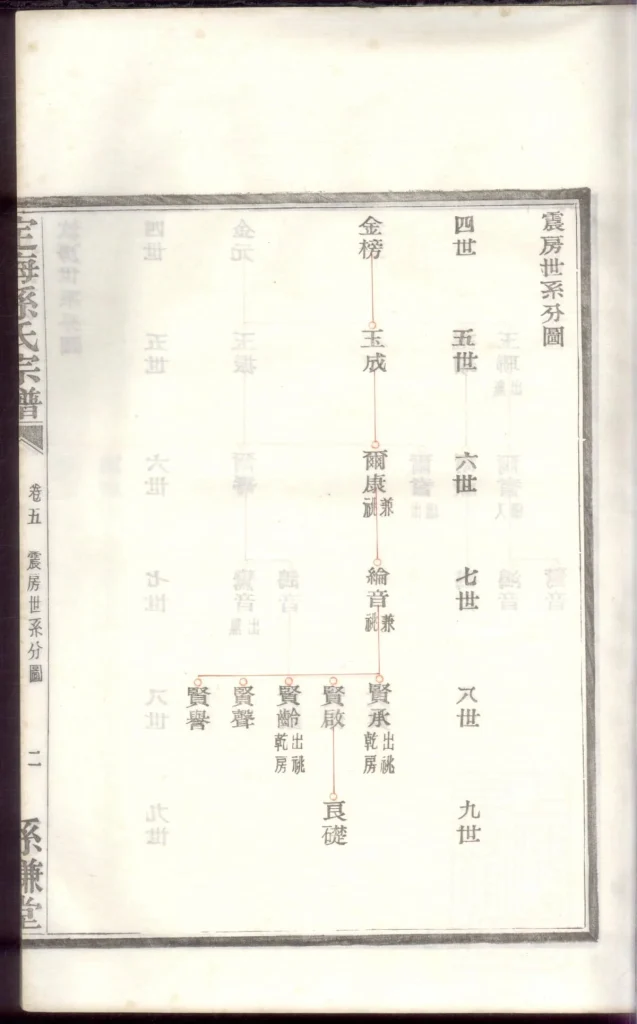 震房世系分圖
四世
五世
六世
七世
八世
九世
金榜
玉成
爾康 兼祧
綸音 兼祧
賢承 出祧乾房
賢啟
賢齡 出祧乾房
賢聲
賢譽
良礎
定海孫氏宗譜
卷五 震房世系分圖 二
孫謙堂